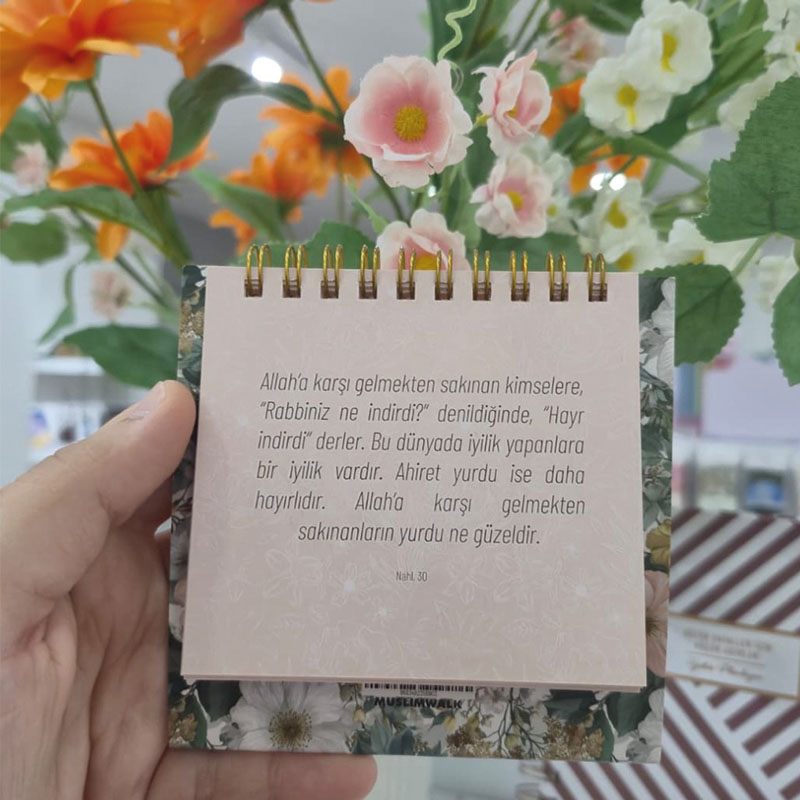 Allah'a karşı gelmekten sakınan kimselere,
“Rabbiniz ne indirdi?” denildiğinde, “Hayr
indirdi” derler. Bu dünyada iyilik yapanlara
bir iyilik vardır. Ahiret yurdu ise daha
hayırlıdır. Allah'a karşı gelmekten
sakınanların yurdu ne güzeldir.
Nahl, 30
MUSLIMWALK